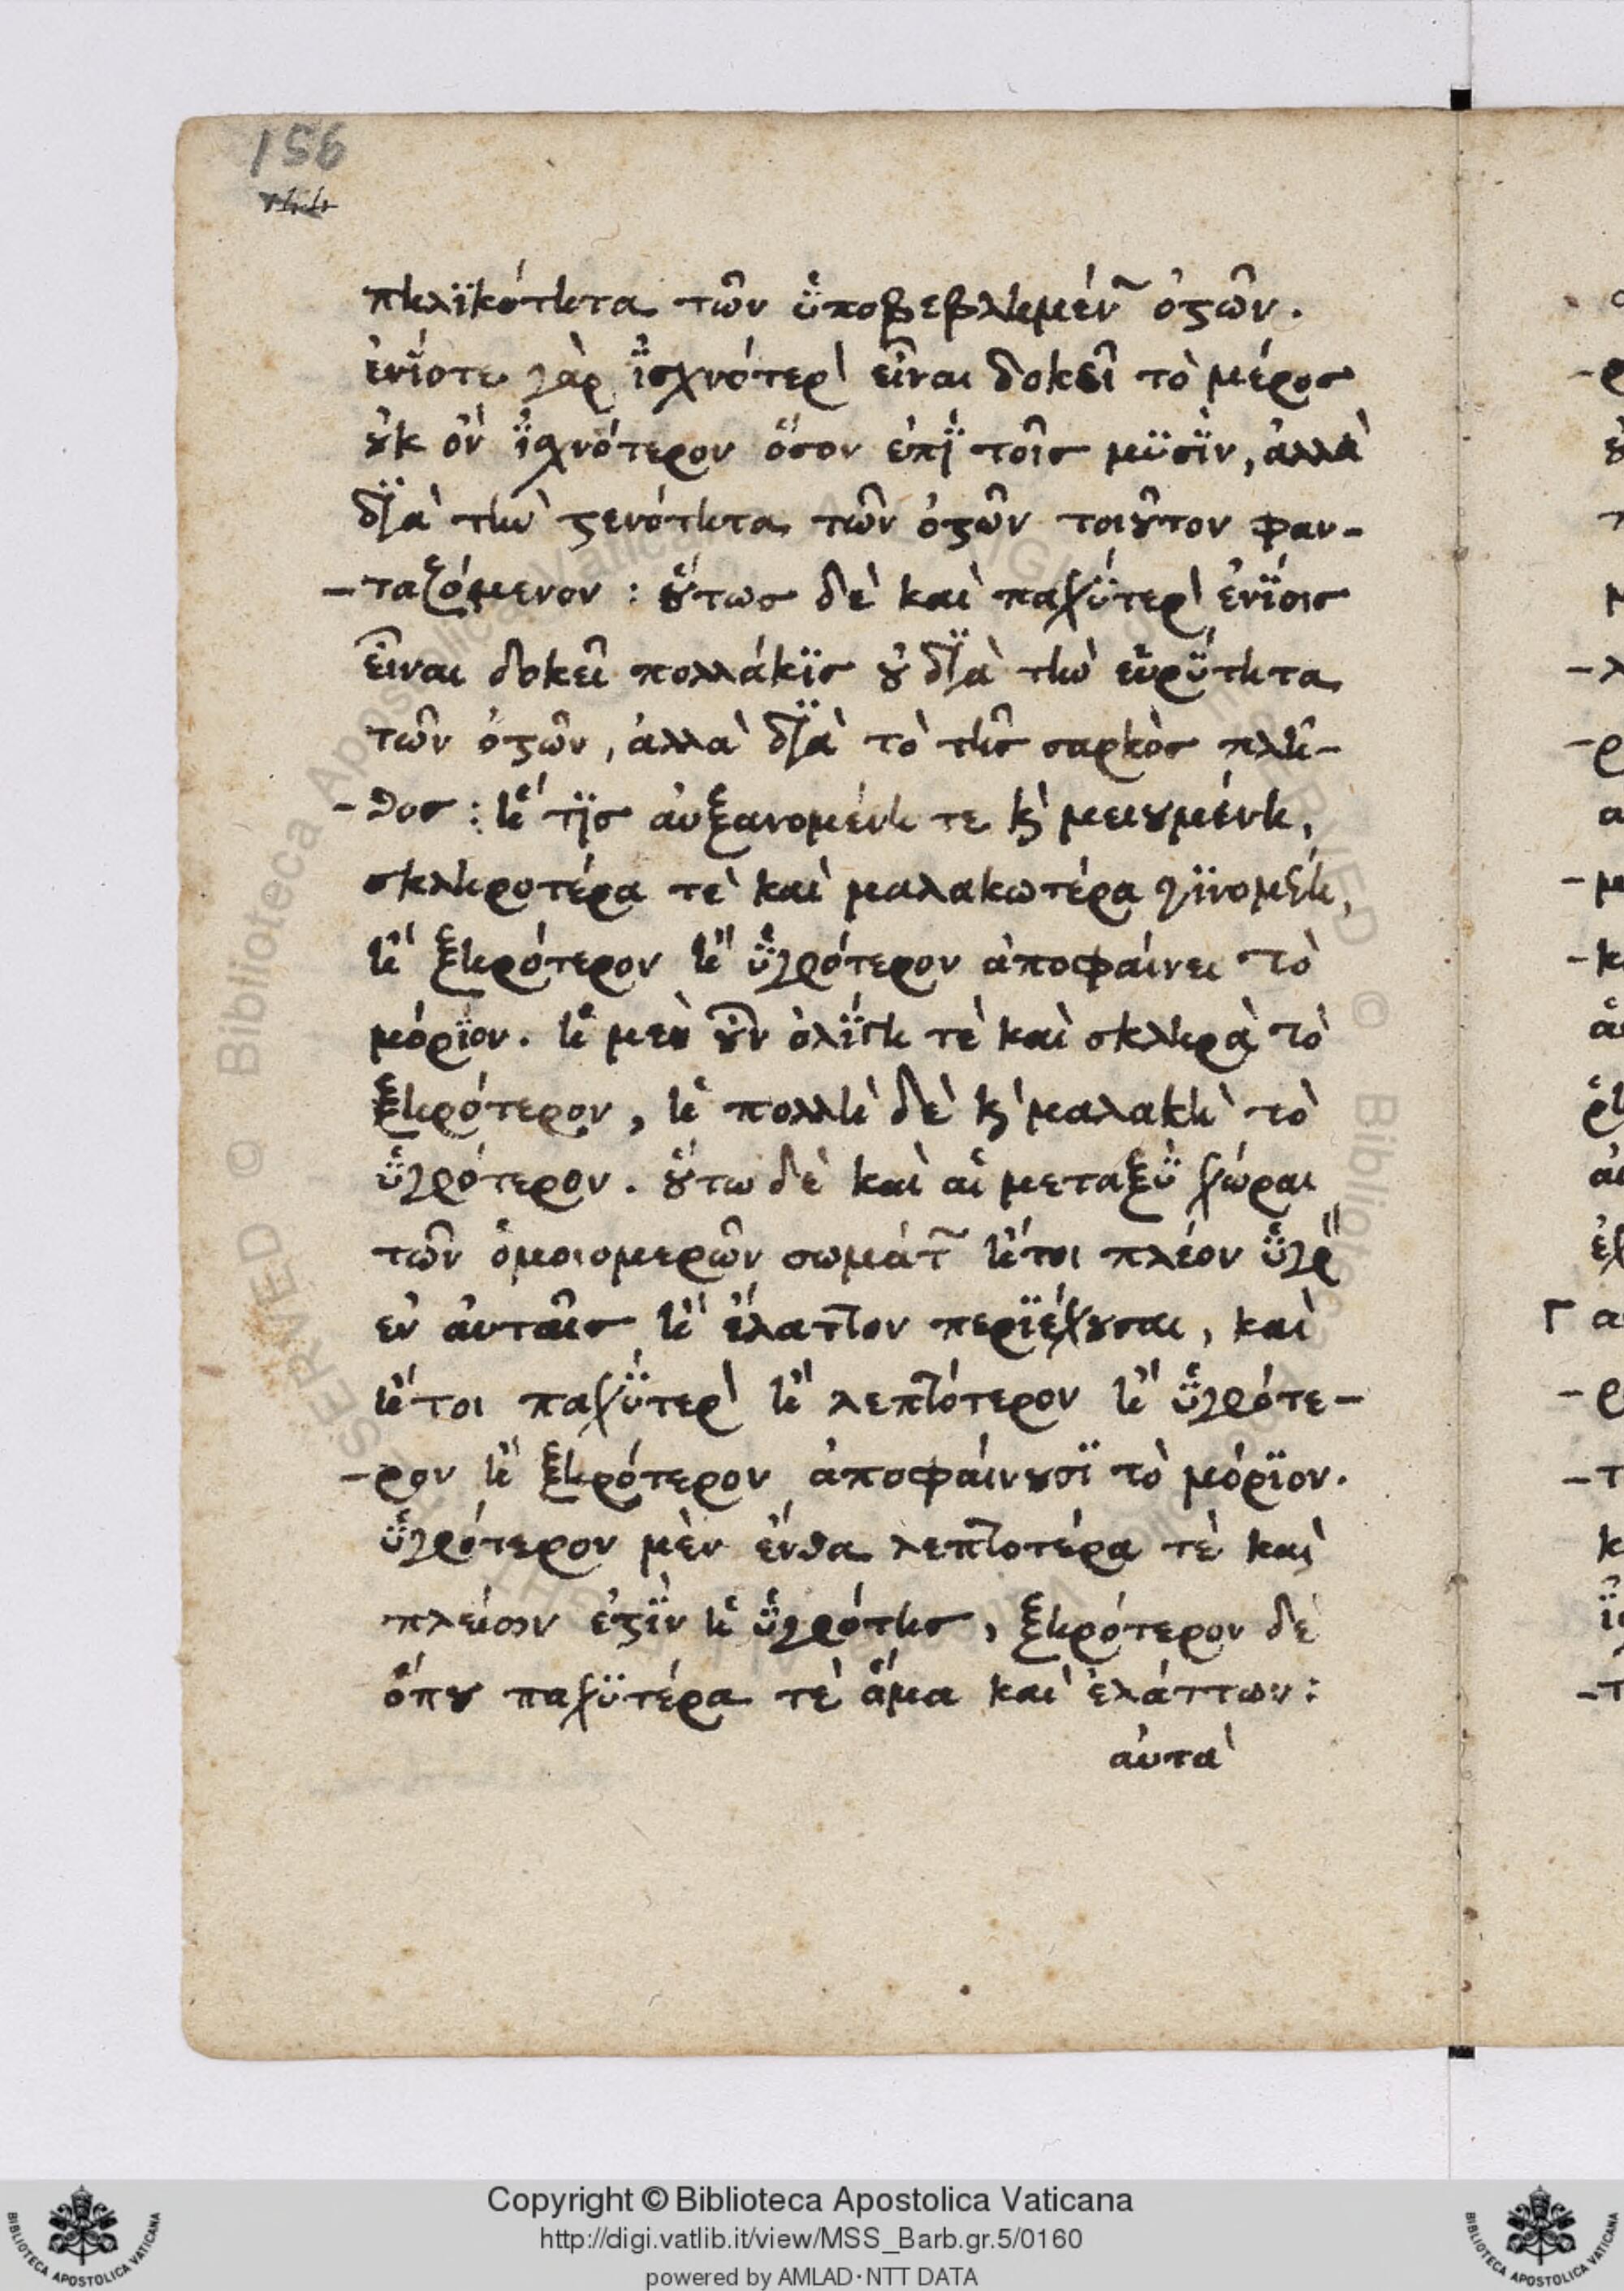 156
144
πηλϊκότητα τῶν ὑποβεβλημένων ὀστῶν.
ἐνΐοτε γὰρ ἰσχνότερον εἶναι δοκεῖ τὸ μέρος
οὐκ ὂν ἰσχνότερον ὅσον ἐπῒ τοῖς μϋσῒν, ἀλλὰ
δϊὰ τὴν στενότητα τῶν ὀστῶν τοιοῦτον φαν-
-ταζόμενον: οὕτως δὲ καὶ παχΰτερον ἐνΐοις
εἶναι δοκεῖ πολλάκϊς οὐ δϊὰ τὴν εὐρΰτητα
τῶν ὀστῶν, ἀλλὰ δϊὰ τὸ τῆς σαρκὸς πλῆ-
-θος: ἥ τϊς αὐξανομένη τε καὶ μειουμένη,
σκληροτέρα τὲ καὶ μαλακωτέρα γϊνομένη,
ἢ ξηρότερον ἢ ὑγρότερον ἀποφαίνει τὸ
μόρϊον. ἡ μὲν οὖν ὀλΐγη τὲ καὶ σκληρὰ τὸ
ξηρότερον, ἡ πολλὴ δὲ καὶ μαλακὴ τὸ
ὑγρότερον. οὕτω δὲ καὶ αἱ μεταξὺ χώραι
τῶν ὁμοιομερῶν σωμάτων ἤτοι πλέον ὑγρὸν
ἐν αὐταῖς ἢ ἔλαττον περϊέχουσαι, καὶ
ἤτοι παχΰτερον ἢ λεπτότερον ἢ ὑγρότε-
-ρον ἢ ξηρότερον ἀποφαίνουσϊ τὸ μόρϊον.
ὑγρότερον μὲν ἔνθα λεπτοτέρα τὲ καὶ
πλείων ἐστῒν ἡ ὑγρότης, ξηρότερον δὲ
ὅπου παχϋτέρα τὲ ἅμα καὶ ἐλάττων:
αὐτὰ
Copyright © Biblioteca Apostolica Vaticana
http://digi.vatlib.it/view/MSS_Barb.gr.5/0160
powered by AMLAD·NTT DATA